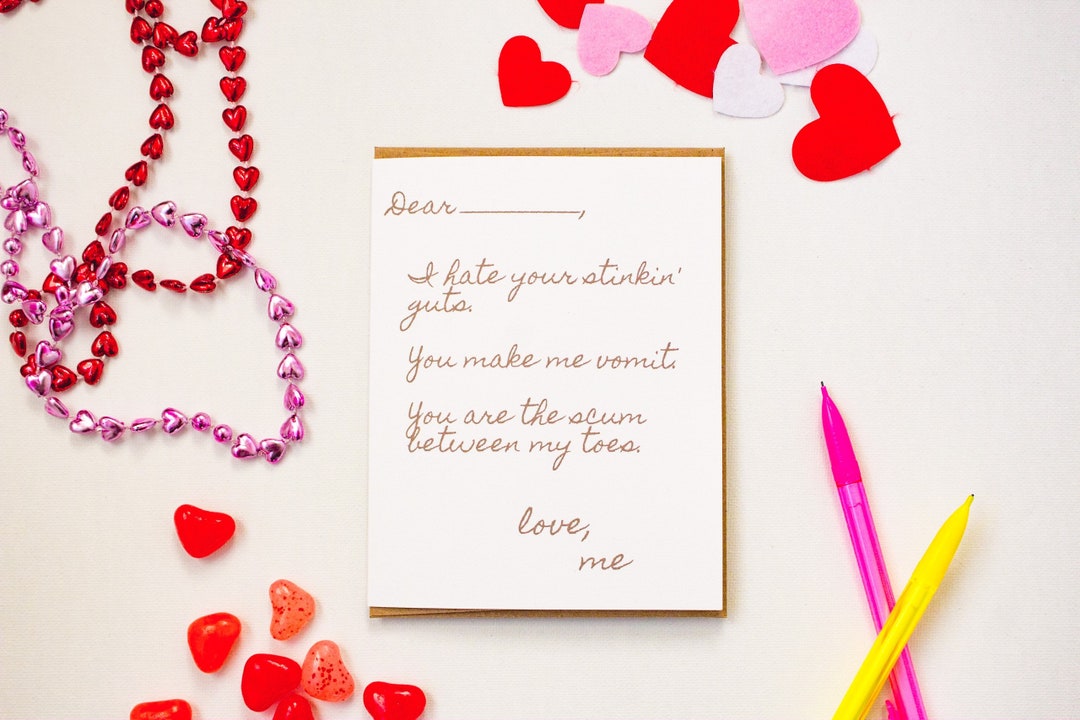 Dear __________,
I hate your stinkin'
guts.
You make me vomit.
You are the scum
between my toes.
love,
me